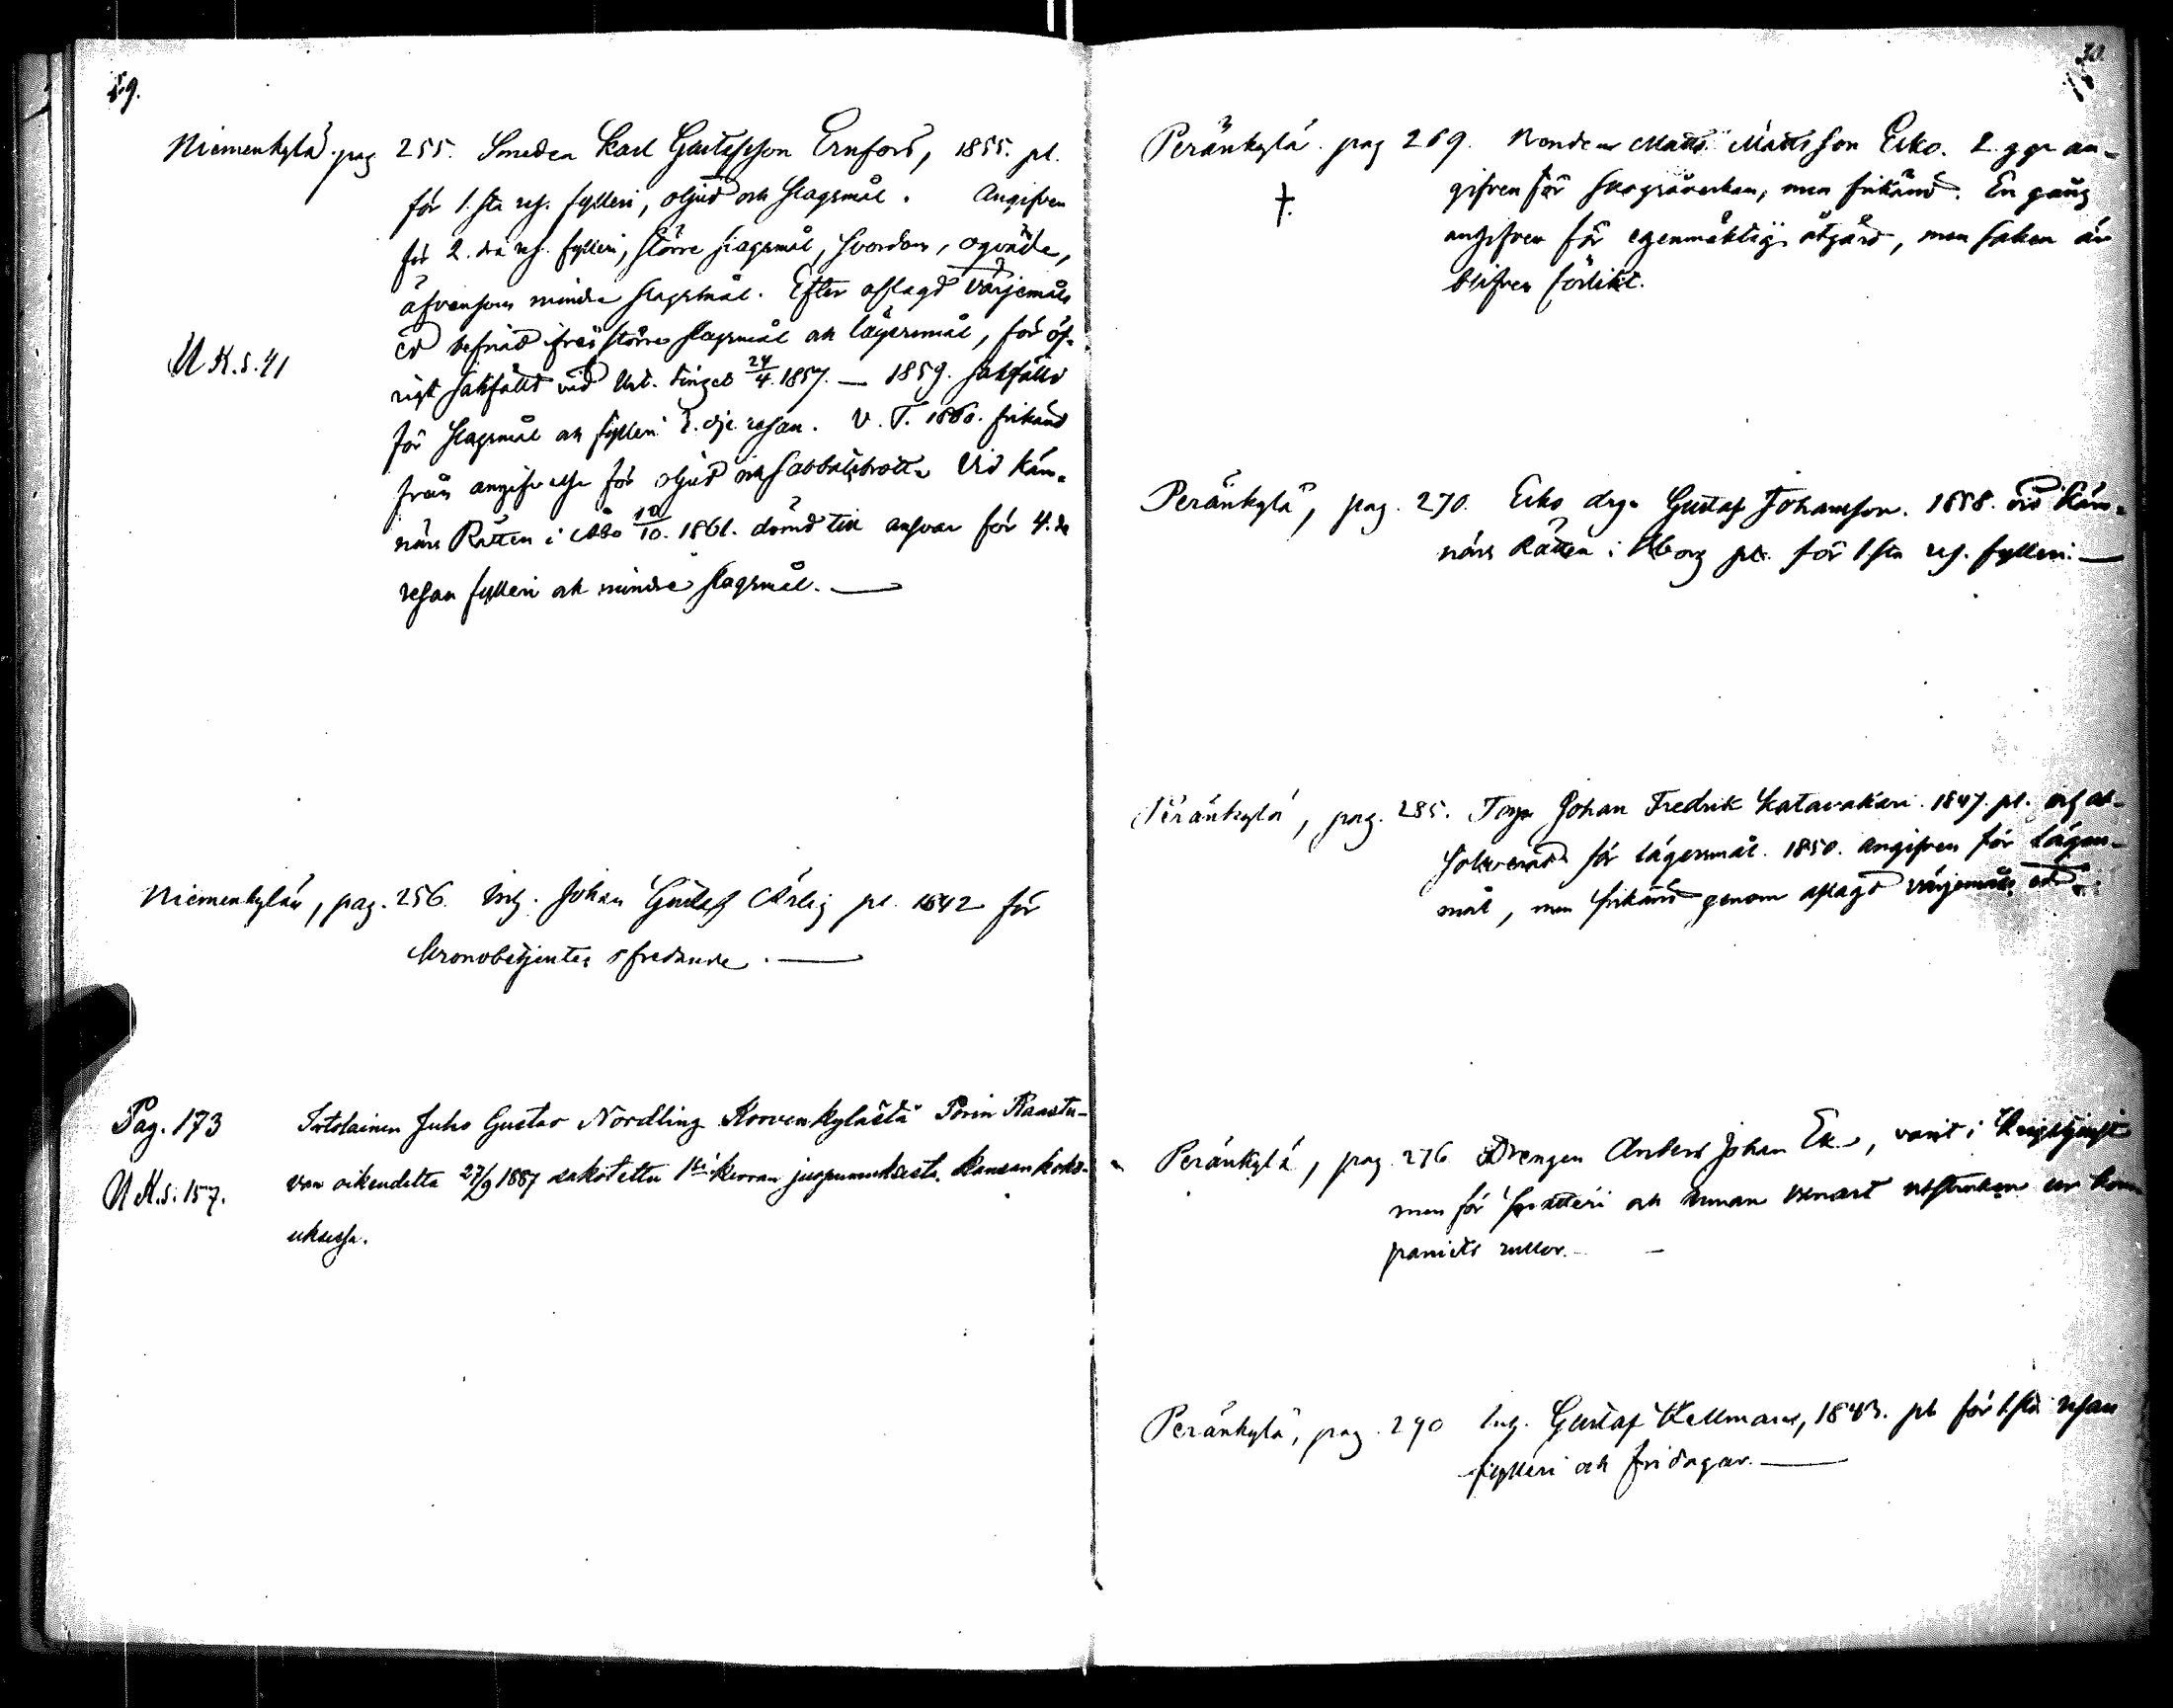 Niemenkylä. pag 255. Smeden Karl Gustafsson Ernfors, 1855. pl.
för 1.sta res. fylleri, oljud och slagsmål. Angifven
för 2.dra res. fylleri, större slagsmål, svordom, oqväde,
äfvensom mindre slagsmål. Efter aflagd värjemåls
ed befriad ifrån större slagsmål och lägersmål, för öf-
U K.s. 41
rigt sakfälld vid Urt. tinget 24/4. 1857. — 1859. sakfälld
för slagsmål och fylleri 3.dje resan. V. T. 1860. frikänd
från angifvelse för oljud och sabbatsbrott. Vid Käm-
närs Rätten i Åbo 10/10. 1861. dömd till ansvar för 4.de
resan fylleri och mindre slagsmål. —
Niemenkylä, pag. 256. Inh. Johan Gustaf Ärlig pl. 1842 för
kronobetjentes ofredande. —
Pag. 173
U K.s: 157.
Itstolainen Juho Gustav Nordling Korvenkylästä Porin Raastu-
van oikeudelta 27/9 1887 sakotettu 1si kerran juopumuksesta, kansan koko-
uksessa.
30.
Peränkylä. pag 269. Bonden Matts Mattsson Eiko. 2. ggr an-
†.
gifven för skogsåverkan, men frikänd. En gång
angifven för egenmäktig åtgärd, men saken är
blifven förlikt.
Peränkylä, pag. 270. Eiko drg. Gustaf Johansson. 1858. vid Käm-
närs Rätten i Åborg pl. för 1.sta res. fylleri. —
Peränkylä, pag. 285. Torp. Johan Fredrik Katavakari. 1847. pl. och ab-
solverad för lägersmål. 1850. angifven för lägers-
mål, men frikänd genom aflagd värjemåls ed.
Peränkylä, pag. 276 Drengen Anders Johan Ek, varit i krigstjenst
men för snatteri och annan vanart utstruken ur kom
paniets rullor. —
Peränkylä, pag. 290 Inh. Gustaf Kellman, 1843. pl. för 1.sta resan
fylleri och fridagar. —